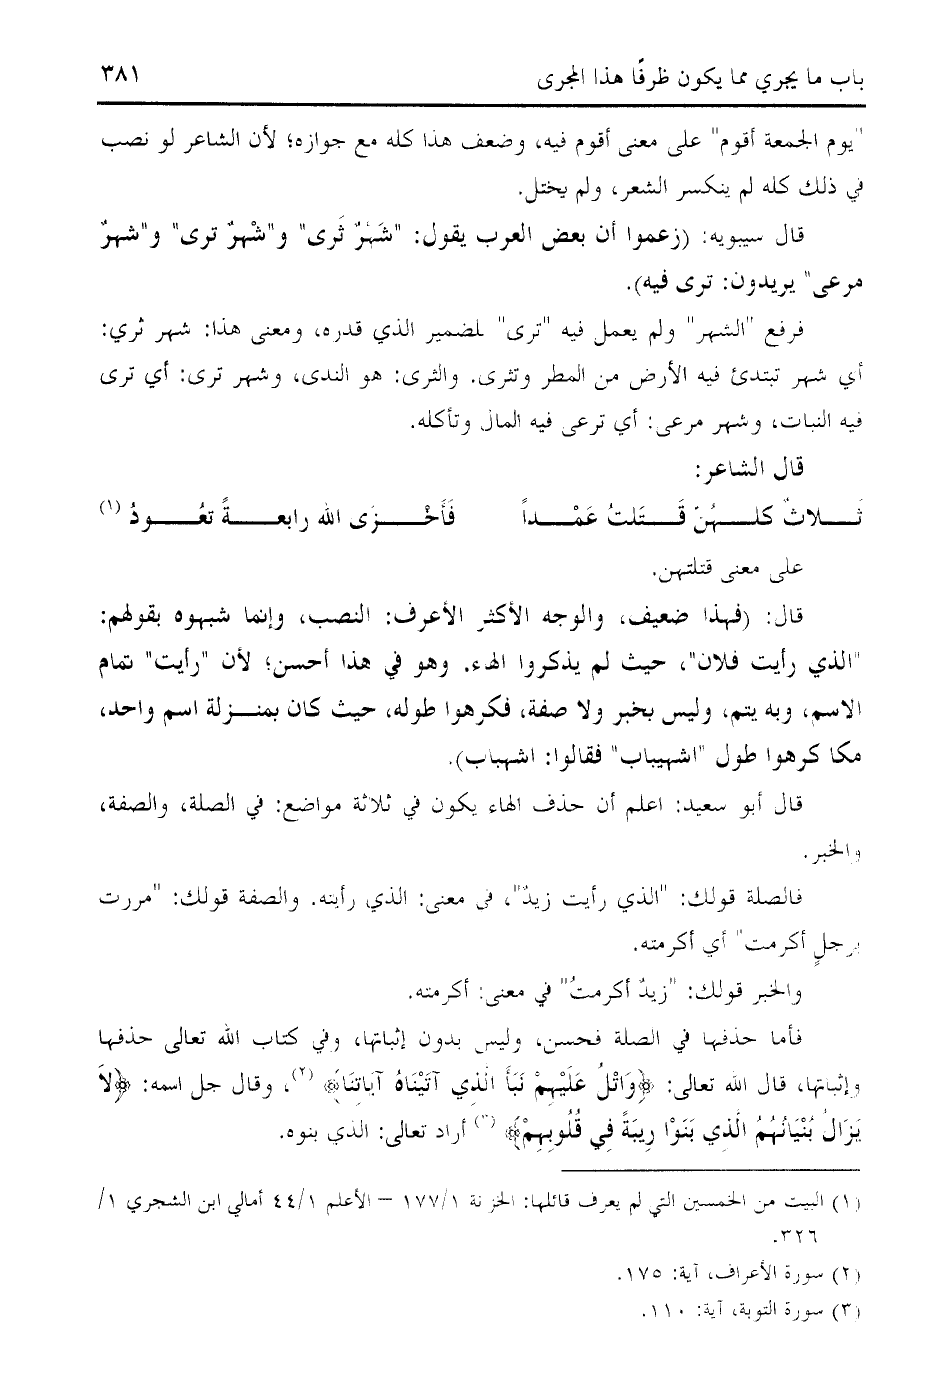 باب ما يجري مما يكون ظرفًا هذا المجرى ٣٨١
"يوم الجمعة أقوم" على معنى أقوم فيه، وضعف هذا كله مع جوازه؛ لأن الشاعر لو نصب
في ذلك كله لم ينكسر الشعر، ولم يختل.
قال سيبويه: (زعموا أن بعض العرب يقول: "شَهْرٌ ثَرى" و"شْهرٌ ترى" و"شهرٌ
مرعى" يريدون: ترى فيه).
فرفع "الشهر" ولم يعمل فيه "ترى" للضمير الذي قدره، ومعنى هذا: شهر ثري:
أي شهر تبتدئ فيه الأرض من المطر وتثرى. والثرى: هو الندى، وشهر ترى: أي ترى
فيه النبات، وشهر مرعى: أي ترعى فيه المال وتأكله.
قال الشاعر:
ثَـلاثٌ كلـهُنّ قَـتَلتُ عَمْـداً فَأَخْـزَى الله رابعـةً تعُـودُ (١)
على معنى قتلتهن.
قال: (فهذا ضعيف، والوجه الأكثر الأعرف: النصب، وإنما شبهوه بقولهم:
"الذي رأيت فلان"، حيث لم يذكروا الهاء. وهو في هذا أحسن؛ لأن "رأيت" تمام
الاسم، وبه يتم، وليس بخبر ولا صفة، فكرهوا طوله، حيث كان بمنـزلة اسم واحد،
مكا كرهوا طول "اشهيباب" فقالوا: اشهباب).
قال أبو سعيد: اعلم أن حذف الهاء يكون في ثلاثة مواضع: في الصلة، والصفة،
والخبر.
فالصلة قولك: "الذي رأيت زيدٌ"، في معنى: الذي رأيته. والصفة قولك: "مررت
برجلٍ أكرمت" أي أكرمته.
والخبر قولك: "زيدٌ أكرمتُ" في معنى: أكرمته.
فأما حذفها في الصلة فحسن، وليس بدون إثباتها، وفي كتاب الله تعالى حذفها
وإثباتها، قال الله تعالى: ﴿وَاتْلُ عَلَيْهِمْ نَبَأَ الَّذِي آتَيْنَاهُ آيَاتِنَا﴾ (٢)، وقال جل اسمه: ﴿لاَ
يَزَالُ بُنْيَانُهُمُ الَّذِي بَنَوْا رِيبَةً فِي قُلُوبِهِمْ﴾ (٣) أراد تعالى: الذي بنوه.
(١) البيت من الخمسين التي لم يعرف قائلها: الخزانة ١٧٧/١ – الأعلم ٤٤/١ أمالي ابن الشجري ١/
٣٢٦.
(٢) سورة الأعراف، آية: ١٧٥.
(٣) سورة التوبة، آية: ١١٠.